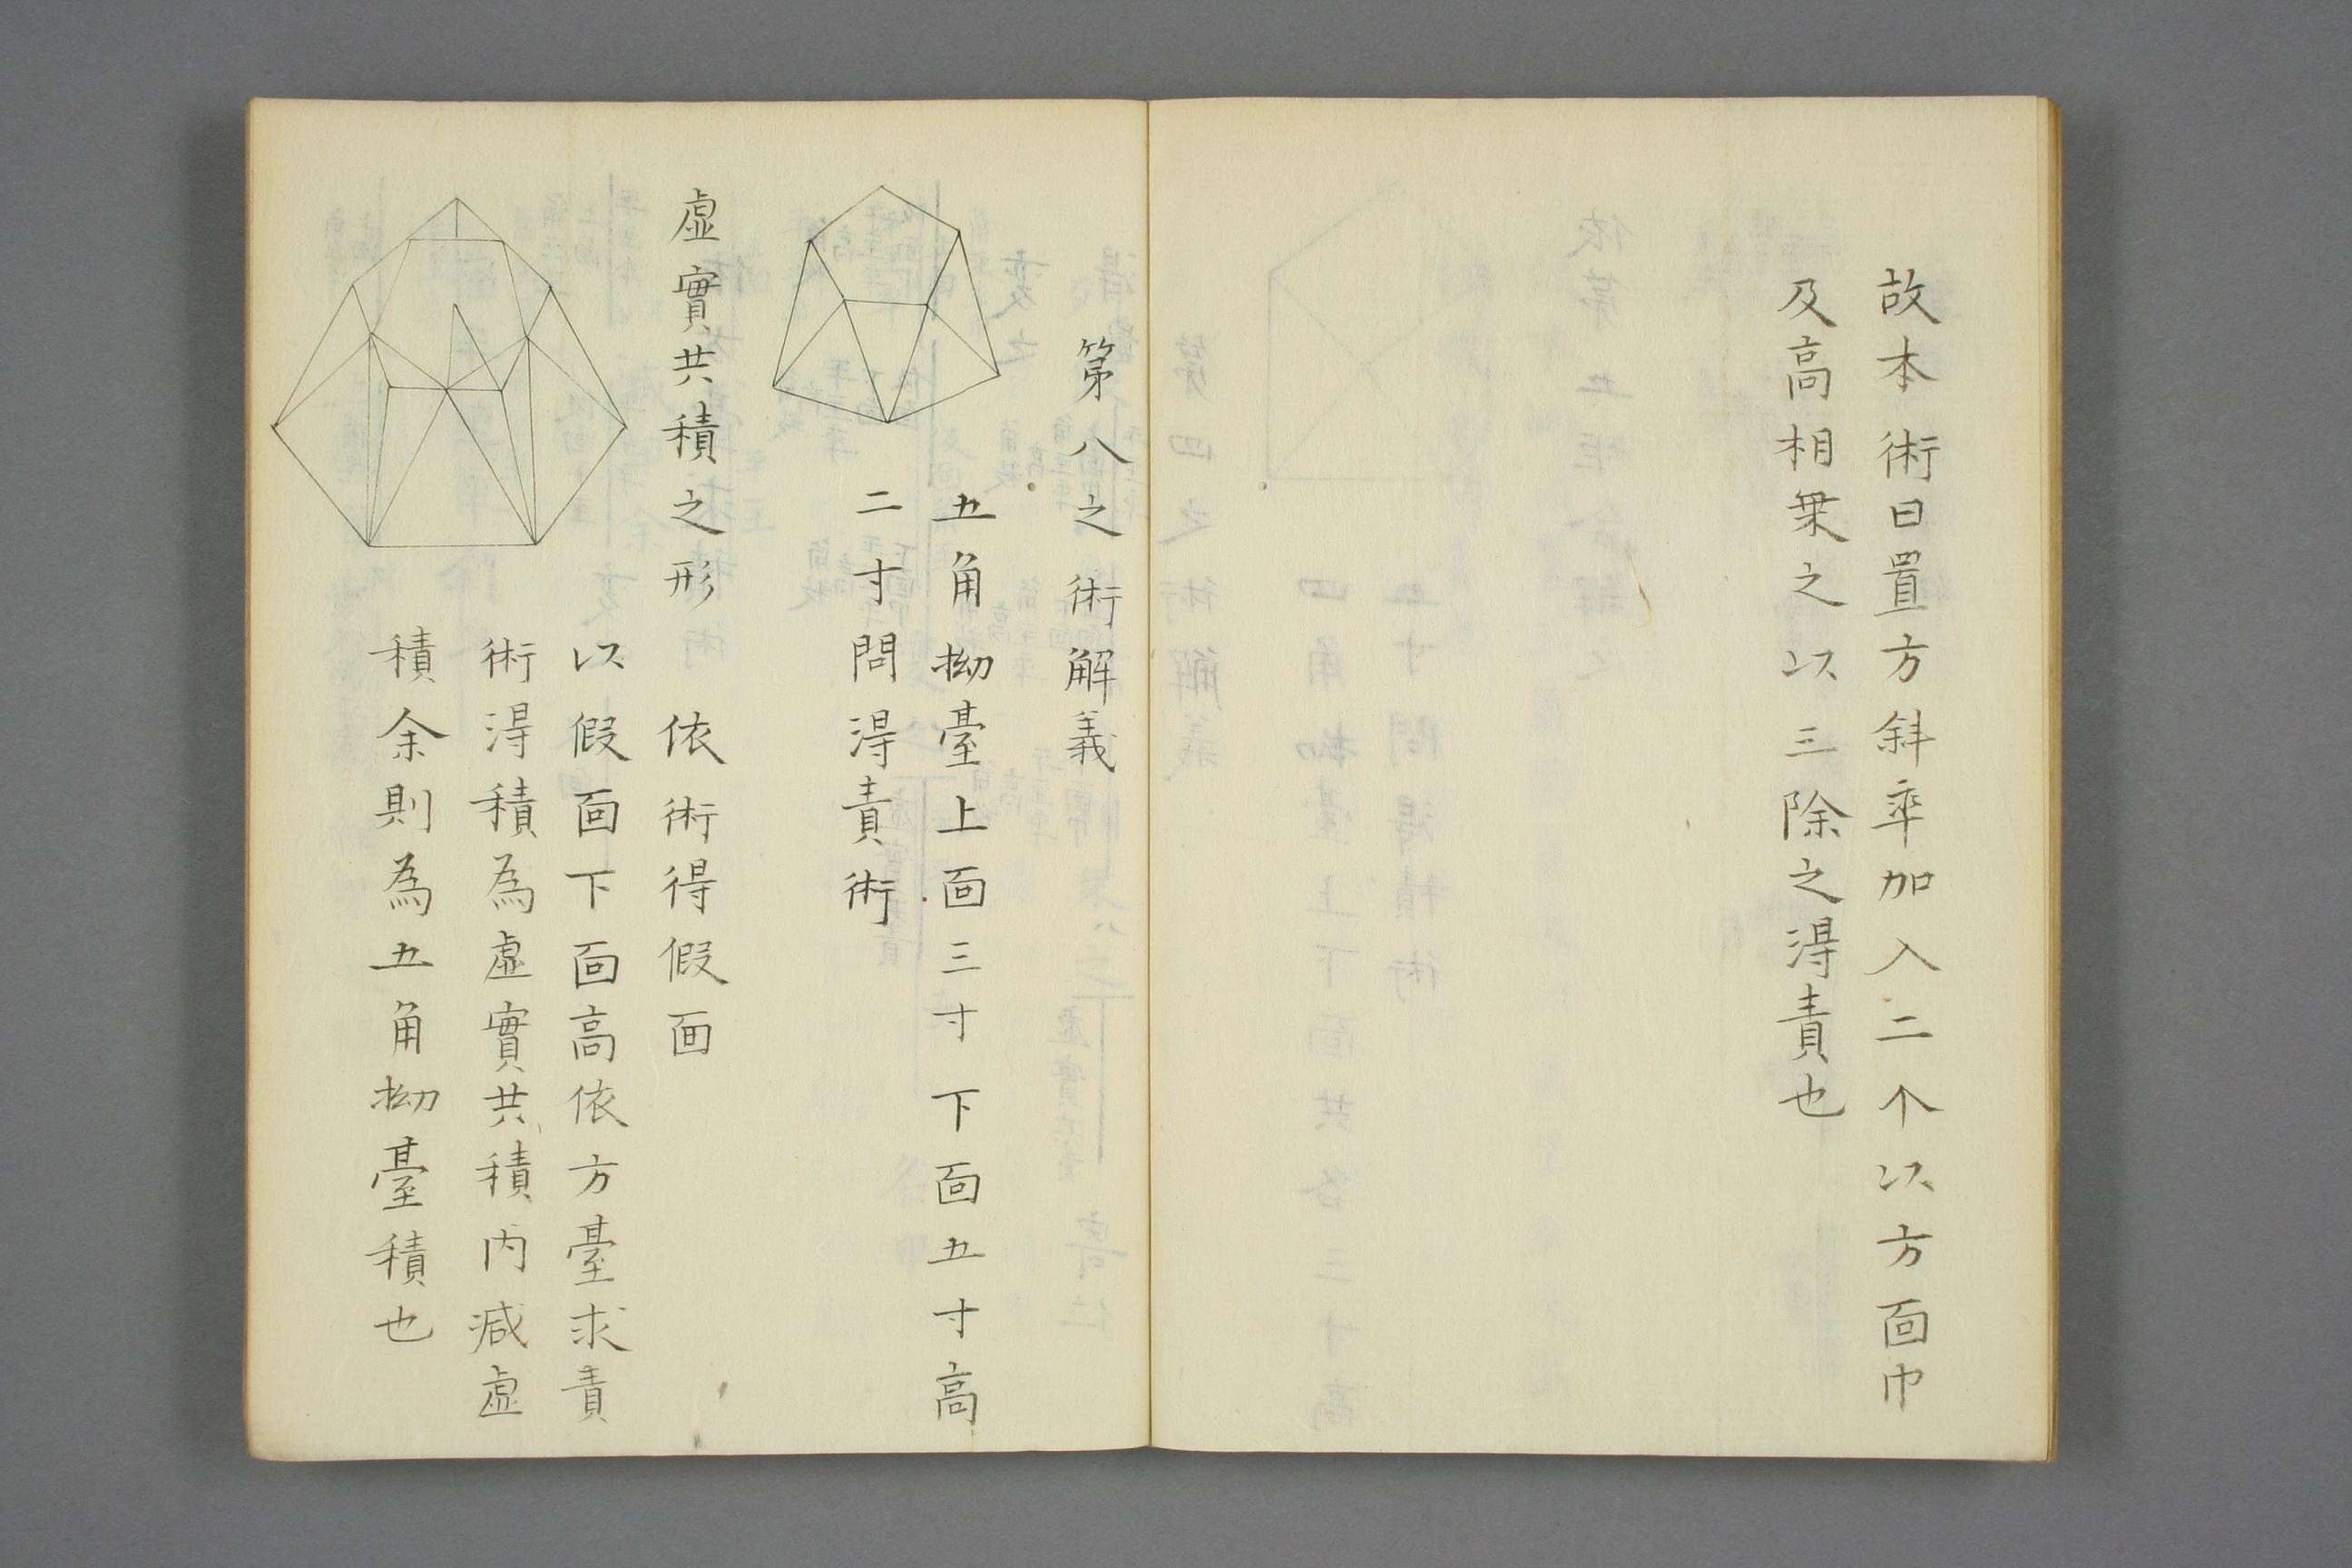 故本術曰置方斜率加入二个以方面巾
及高相乗之以三除之得責也
第八之術解義
五角拗臺上面三寸下面五寸高
二寸問得責術
虚實共積之形 依術得假面
以假面下面高依方臺求責
術得積為虚實共積内減虚
積余則為五角拗臺積也